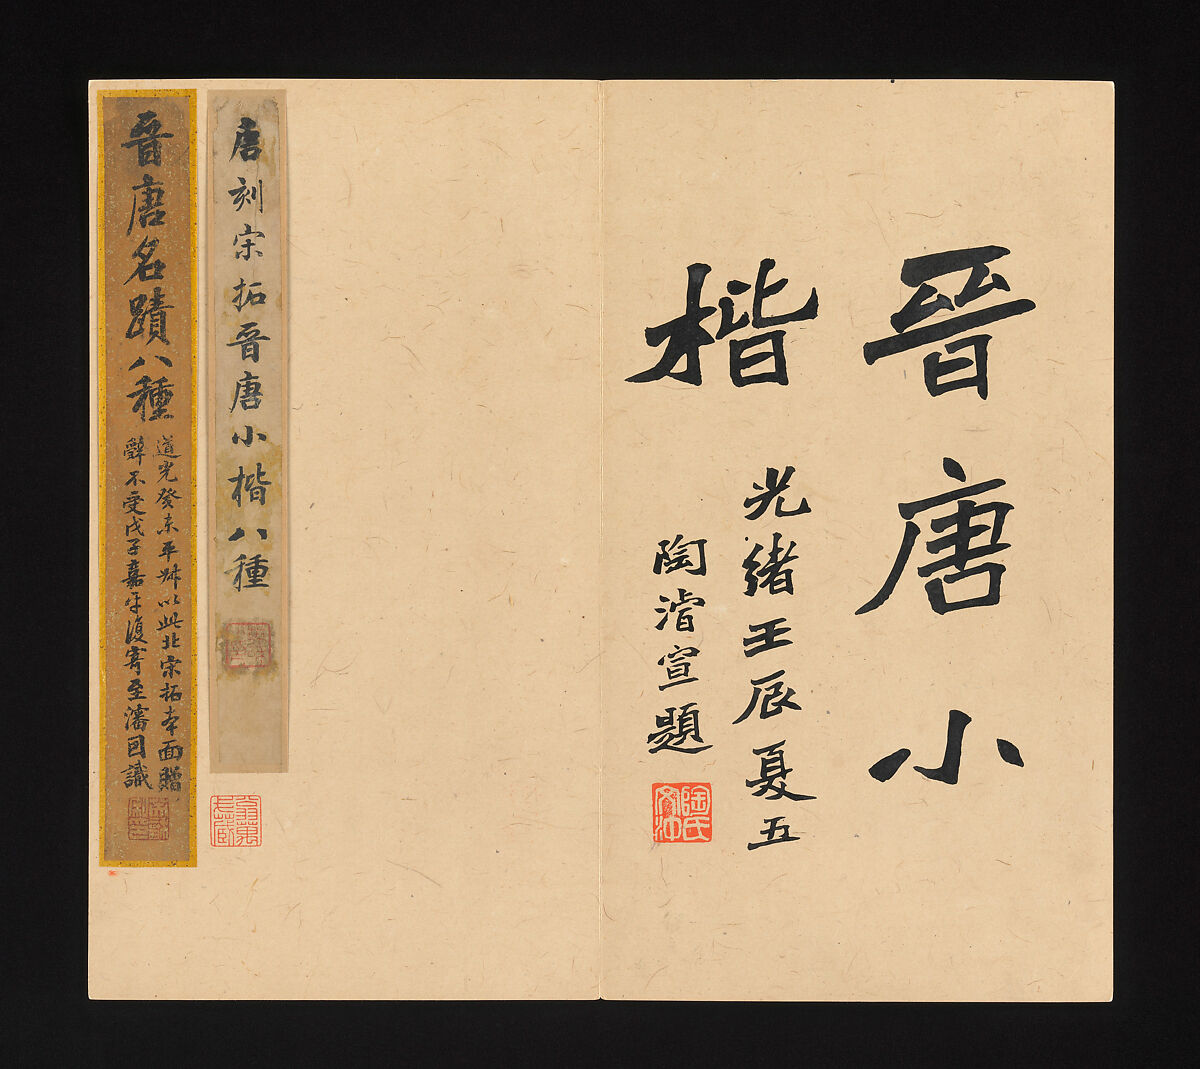 晉唐小
楷
光緒壬辰夏五
陶濬宣題
陶氏文沖
唐刻宋拓晉唐小楷八種
翁萬戈藏
晉唐名蹟八種
道光癸未平叔以此北宋拓本面贈
辤不受戊子嘉平復寄至瀋因識